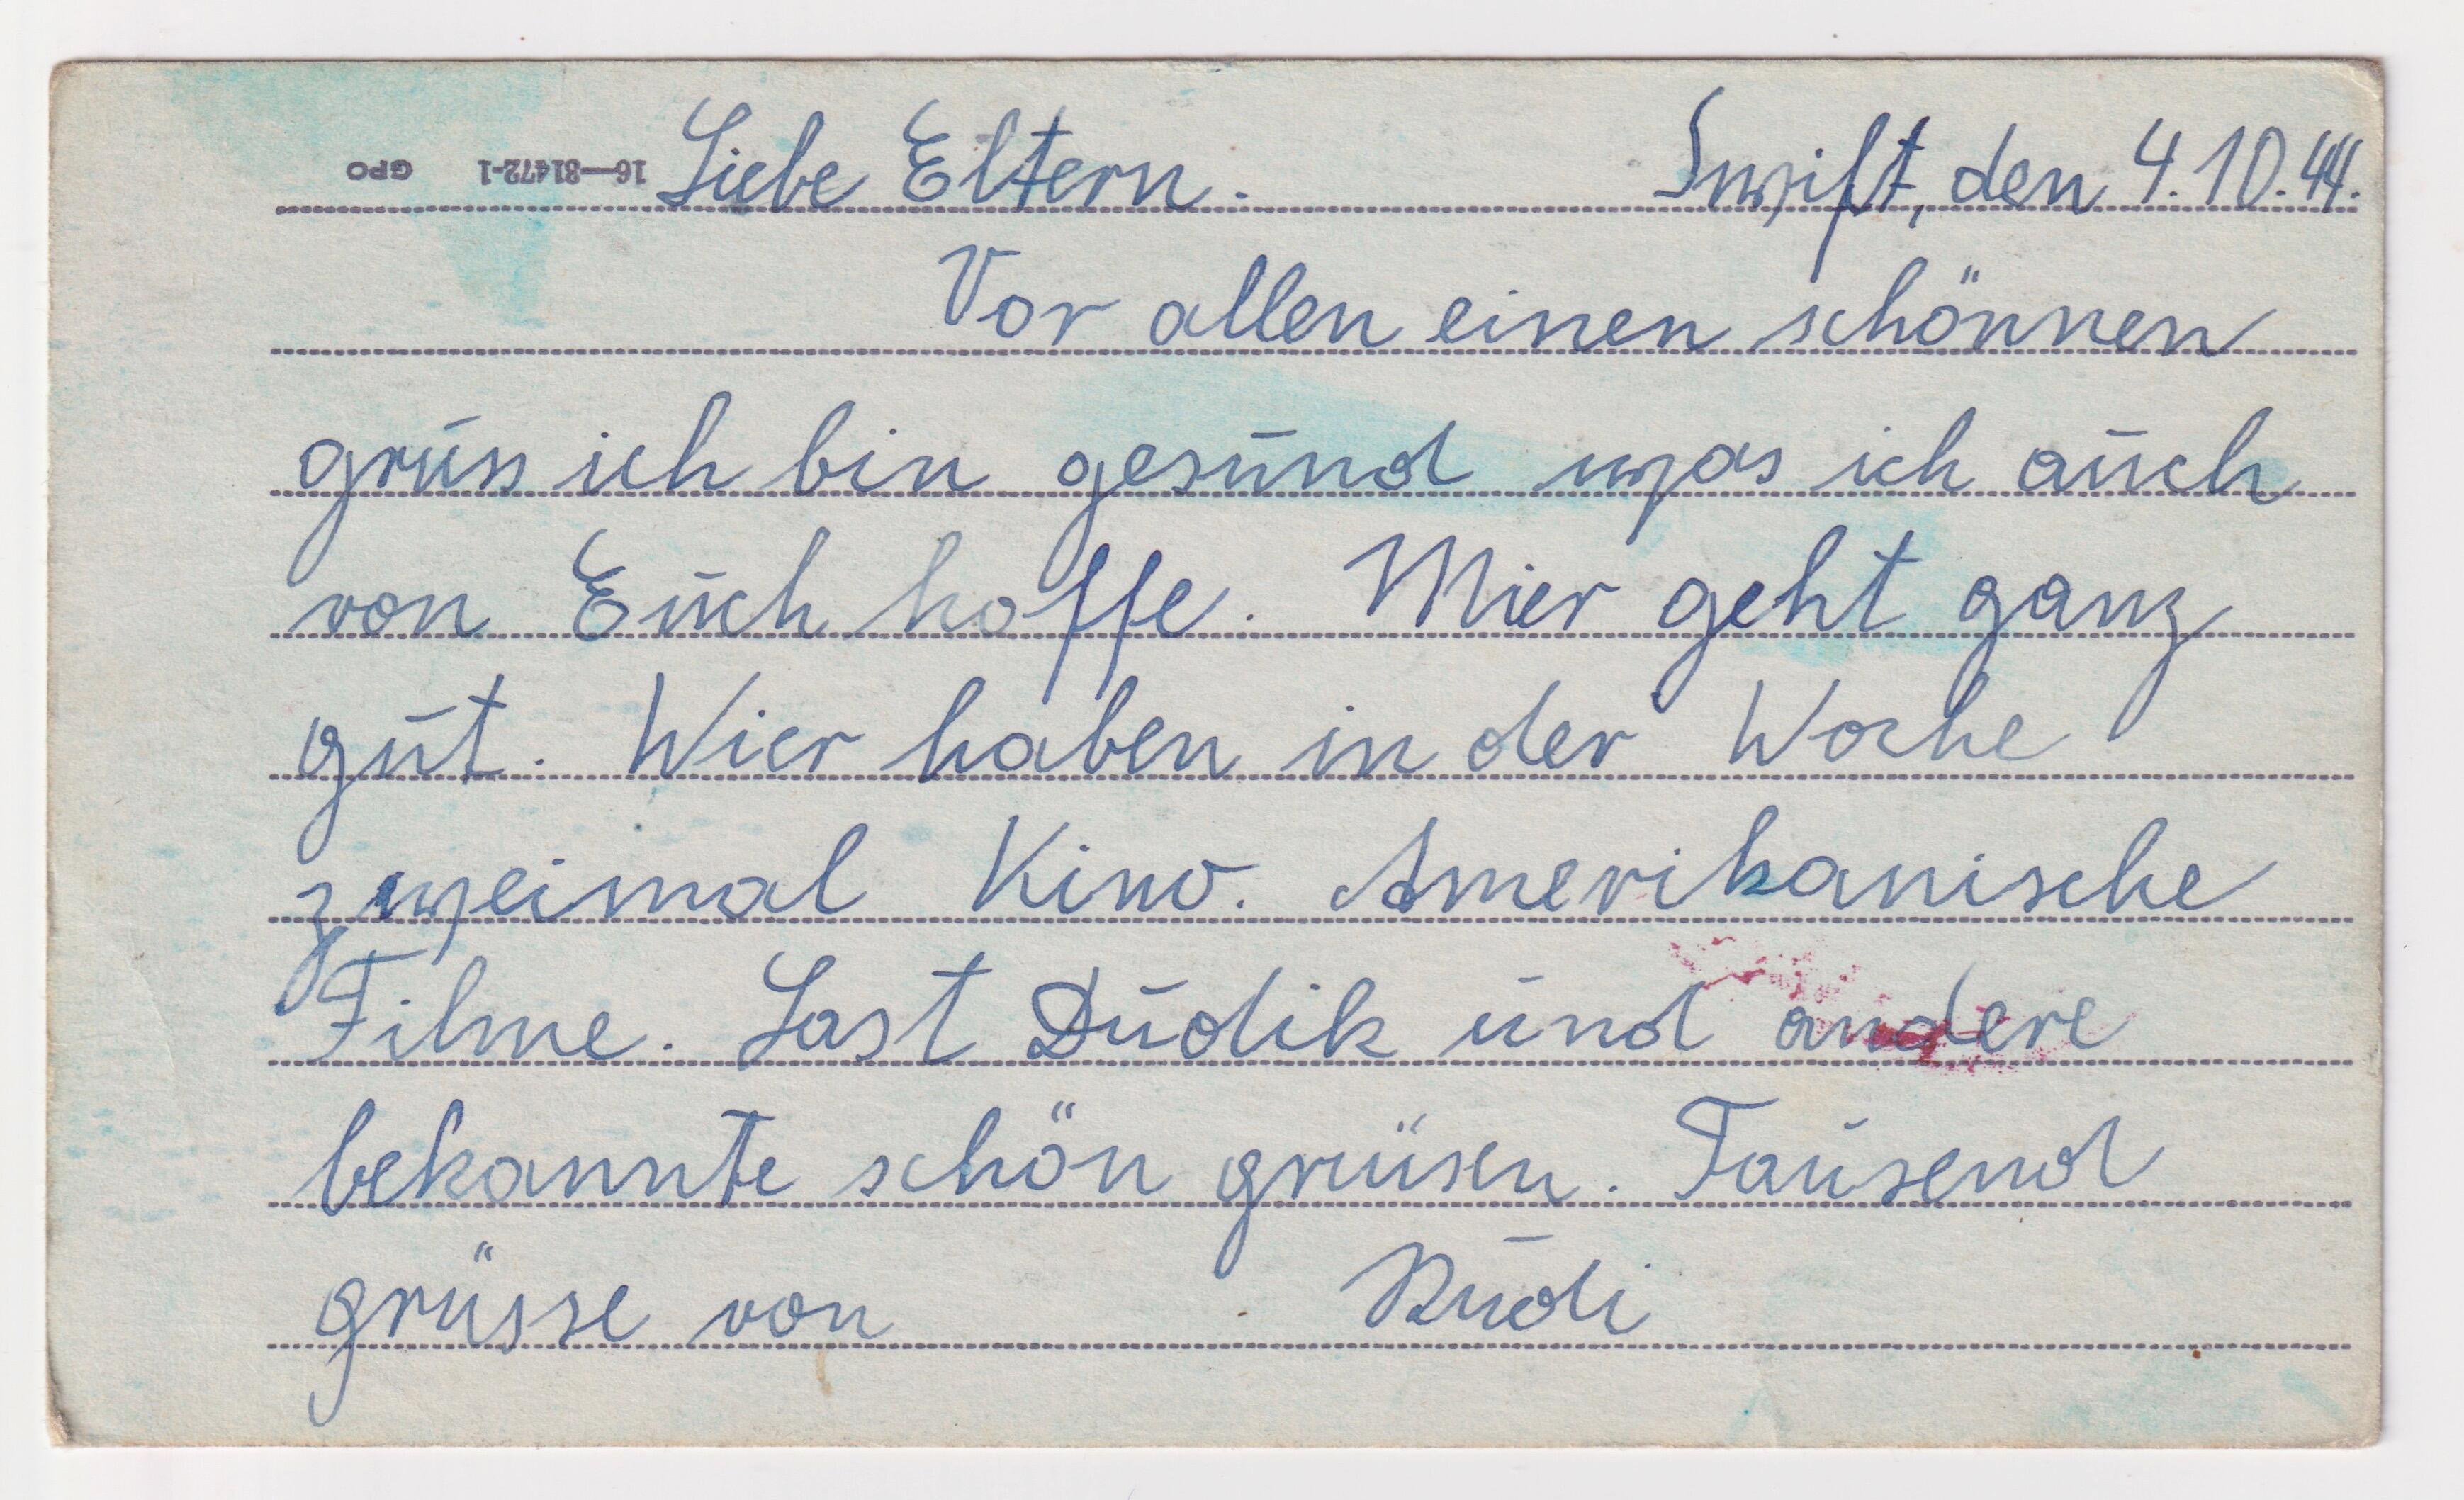 16—81472-1 GPO
Liebe Eltern. Swift, den 4.10.44.
Vor allen einen schönnen
gruss ich bin gesund was ich auch
von Euch hoffe. Mier geht ganz
gut. Wier haben in der Woche
zweimal Kino. Amerikanische
Filme. Last Dudik und andere
bekannte schön grüsen. Tausend
grüsse von Rudi